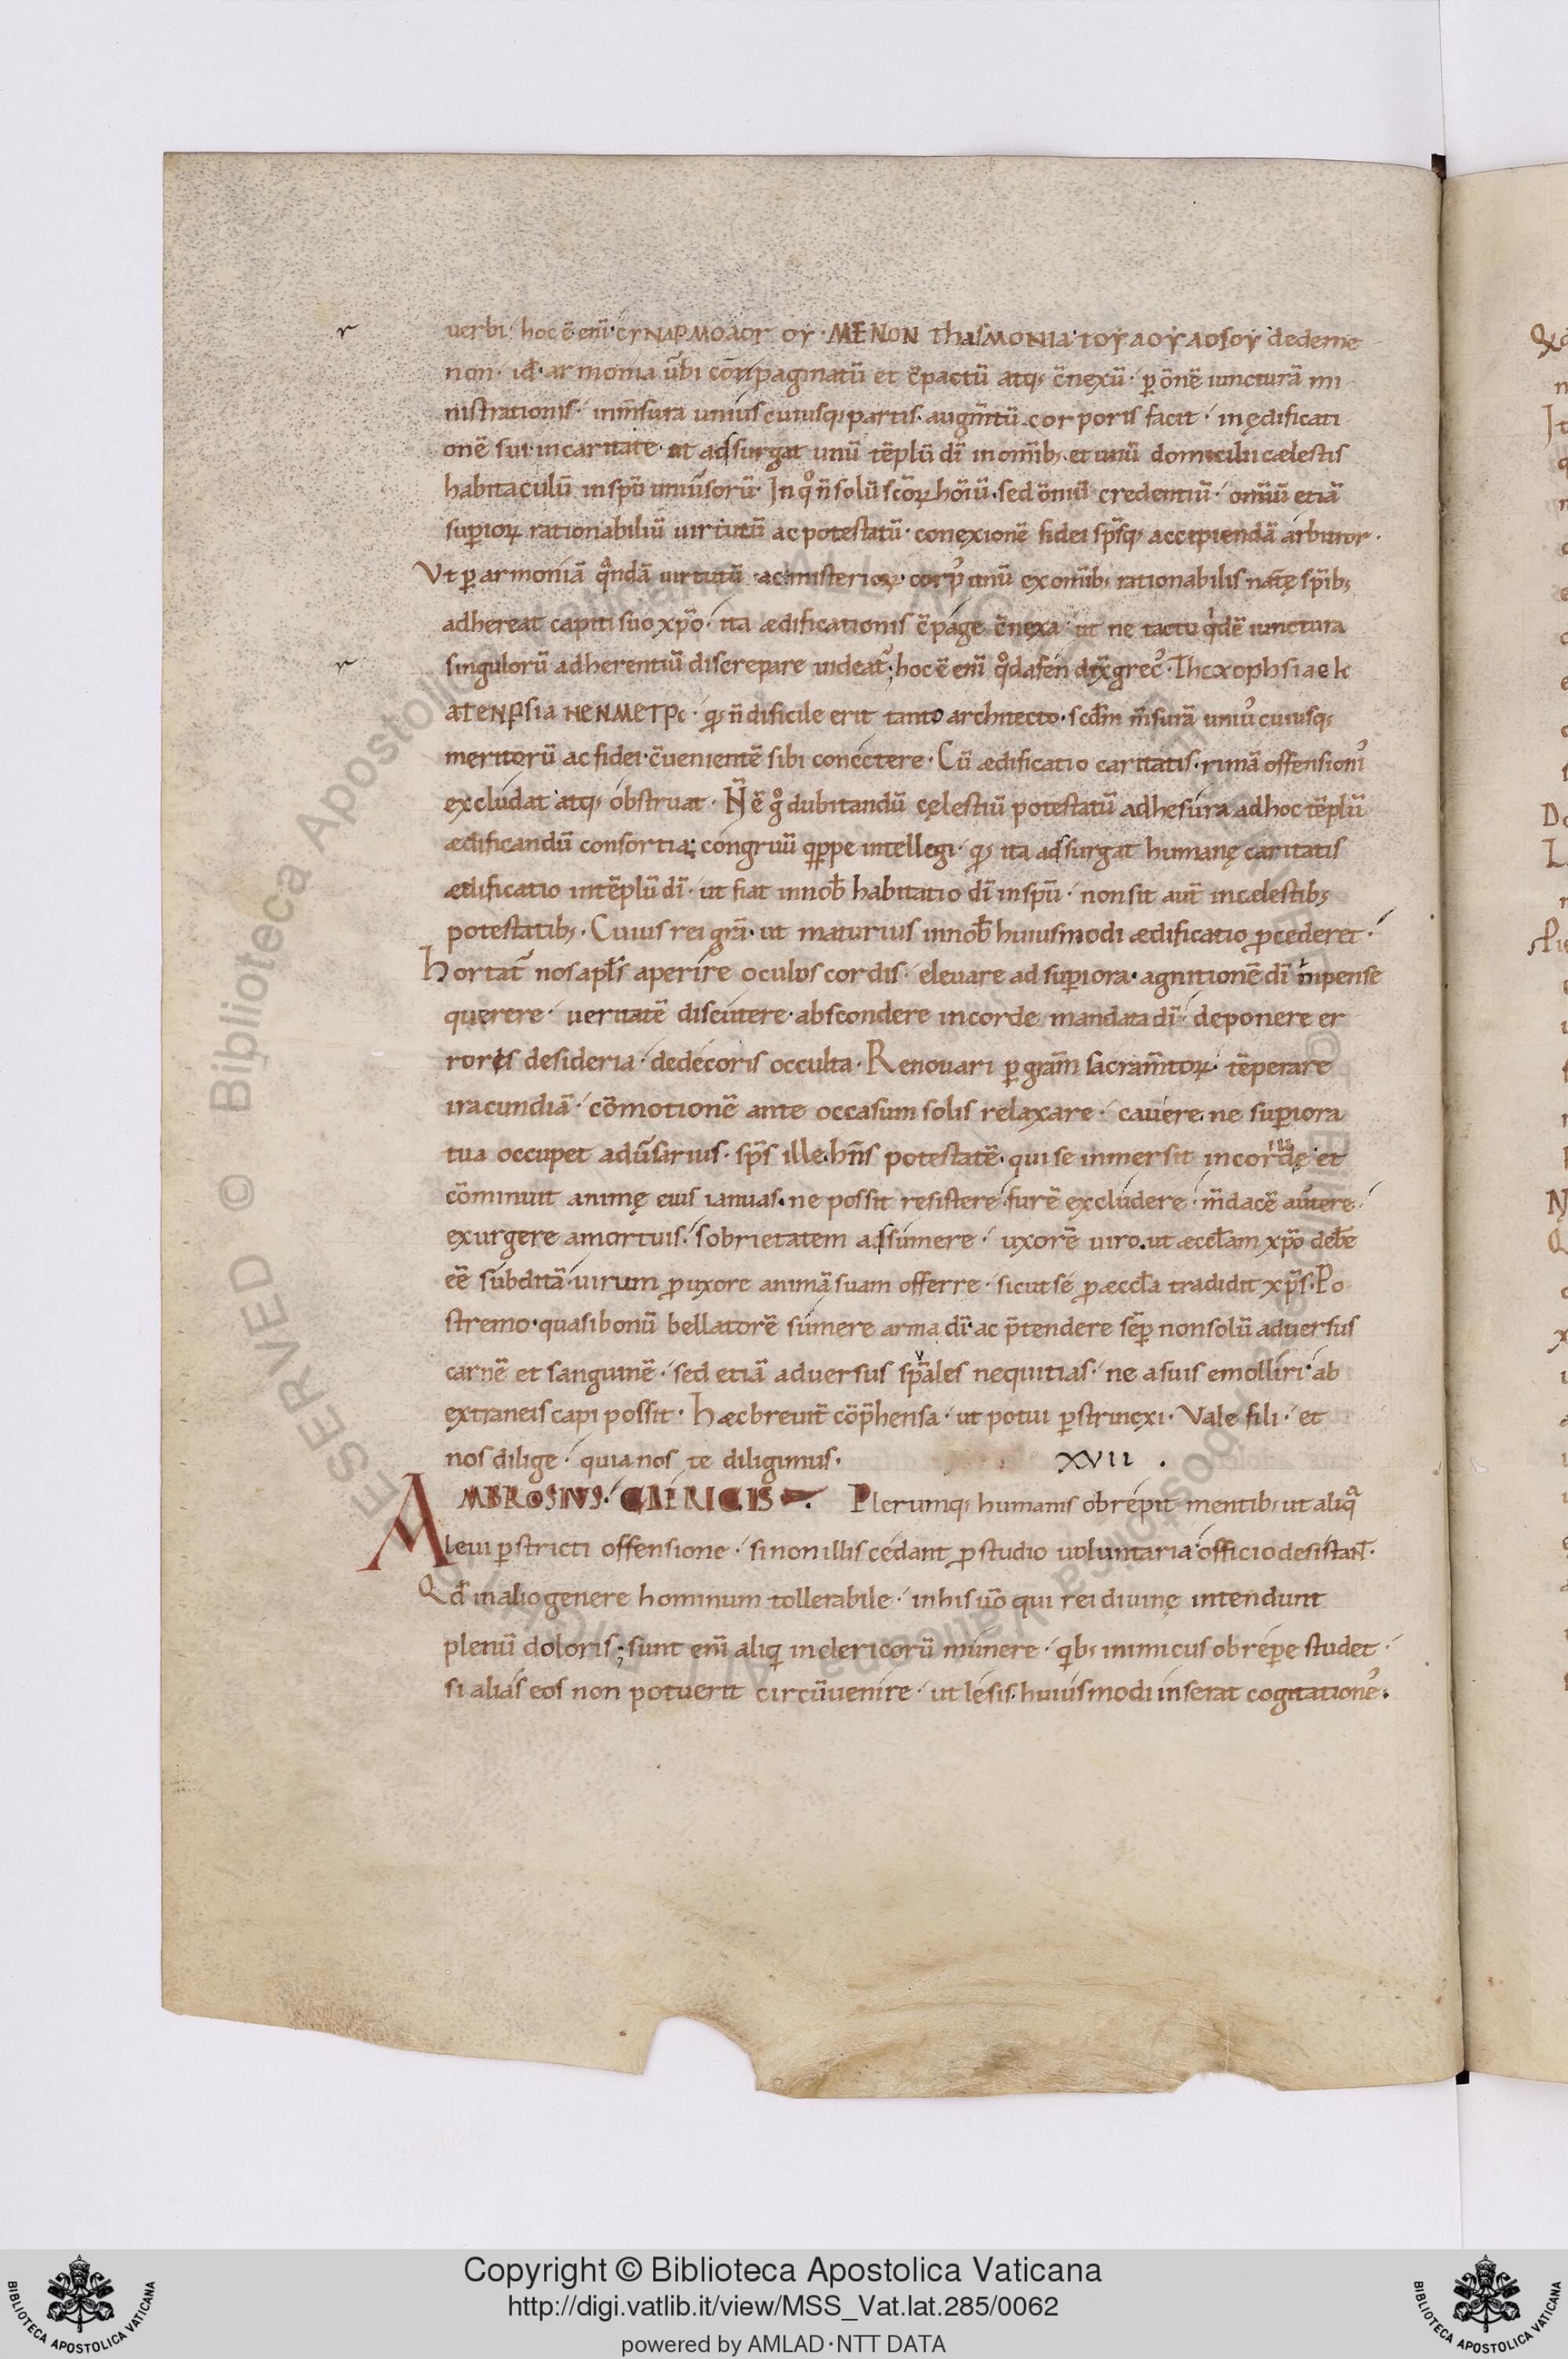 uerbi · hoc ē eni͂ · cyNaPMoaor oy · MENON ThaSMONIa · Toyaoyaosoy dedeme
non · id̄ · armonia ūbi conpaginatū et c̄pactū atq; c̄nexū · ꝑ om̄ē iuncturā mi
nistrationis · in m̄sura unius cuiusq; partis · augm̄tū corporis facit · in ędificati
onē sui in caritate · ut adsurgat unū tēplū dī in om̄ib; et unū domicilii cælestis
habitaculū in spū uniūsorū · In qͦ n̄ solū scōꝝ hoīū · sed om̄iū credentiū · om̄iū etiā
suꝑioꝝ rationabiliū uirtutū ac potestatū · conexionē fidei sps̄q; accipiendā arbitror ·
Vt ꝑ armoniā qͣndā uirtutū ac misterioꝝ · corpꝰ unū ex om̄ib; rationabilis nat̄ę spīb;
adhereat capiti suo xp̄o · ita ædificationis c̄page c̄nexa · ut ne tactu qͥdē iunctura
singulorū adherentiū discrepare uideat᷒; hoc ē eni͂ qͦdasen dix̄ grecꝰ · Thexophsiaek
aTENPSia NENMETPc · q; n̄ dificile erit tanto architecto · scd̄m m̄surā uniꝰ cuiusq;
meritorū ac fidei · c̄uenientē sibi conectere · Cū ædificatio caritatis · rimā offensionꝰ
excludat atq; obstruat · N̄ ē gͦ dubitandū cęlestiū potestatū adhesura ad hoc tēplū
ædificandū consortia; congruū qͥppe intellegi · q; ita adsurgat humanę caritatis
ædificatio in tēplū dī · ut fiat in nob̄ habitatio dī in spū · non sit aut̄ in cælestib;
potestatib; · Cuius rei grā · ut maturius in nob̄ huiusmodi ædificatio ꝓcederet ·
Hortat᷒ nos apl̄s aperire oculos cordis · eleuare ad suꝑiora · agnitionē dī inpense
querere · ueritatē discutere · abscondere in corde mandata dī · deponere er
roris desideria · dedecoris occulta · Renouari ꝑ gram̄ sacram̄toꝝ · tēperare
iracundiā · cōmotionē ante occasum solis relaxare · cauere ne suꝑiora
tua occupet adūsarius · sps̄ ille hn̄s potestatē · qui se inmersit in cor iudę et
cōminuit animę eius ianuas · ne possit resistere furē excludere · m̄dacē auͭere ·
exurgere a mortuis · sobrietatem adsumere · uxorē uiro · ut æccl̄am xp̄o deb̄e
eē subditā · uirum ꝓ uxore animā suam offerre · sicut se ꝓ æccl̄a tradidit xp̄s · Po
stremo · quasi bonū bellatorē sumere arma dī · ac p̄tendere sēꝑ non solū aduersus
carnē et sanguinē · sed etiā aduersus spāles nequitias · ne a suis emolliri · ab
extraneis capi possit · Hæc breuit̄ cōp̄hensa · ut potui ꝑstrinxi · Vale fili · et
nos dilige · quia nos te diligimus · XVII .
AMBROSIVS · CLERICIS · Plerumq; humanis obrepit mentib; ut aliqͣ
leui ꝑstricti offensione · si non illis cedant ꝓ studio uoluntaria officio desistant ·
Qd̄ in alio genere hominum tollerabile · in his ūo qui rei diuinę intendunt
plenū doloris; sunt eni͂ aliqͥ in clericorū munere · qͥb; inimicus obrepe studet ·
si alias eos non potuerit circūuenire · ut lesis huiusmodi inserat cogitationeꝰ ·
Copyright © Biblioteca Apostolica Vaticana
http://digi.vatlib.it/view/MSS_Vat.lat.285/0062
powered by AMLAD·NTT DATA